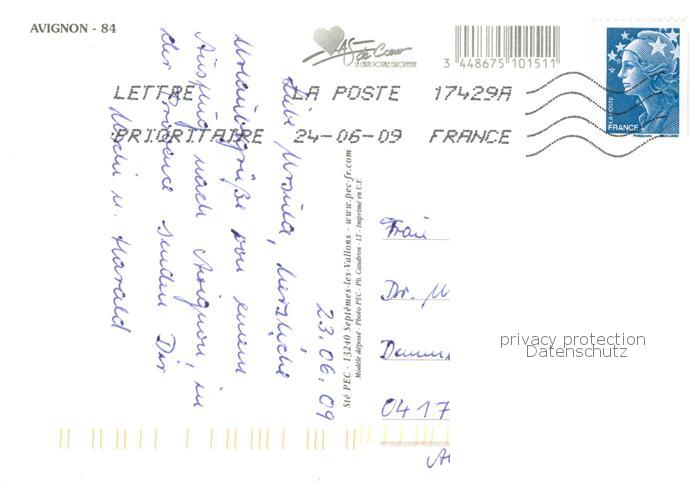 AVIGNON - 84
AS de Cœur
LA CARTE POSTALE EUROPEENNE
3 448675 101511
LA POSTE
FRANCE
LETTRE LA POSTE 17429A
PRIORITAIRE 24-06-09 FRANCE
23.06.09
Liebe Ursula, herzliche
Urlaubsgrüße von einem
Ausflug nach Avignon, in
der Provence senden Dir
u. Harald
Sté PEC - 13240 Septèmes-les-Vallons - www.pec-fr.com
Modèle déposé - Photo PEC - Ph. Caudron - LT - Imprimé en U.E.
Frau
Dr. U
0417
privacy protection
Datenschutz